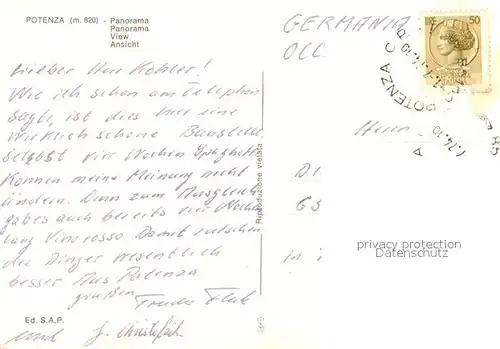 POTENZA (m. 820) - Panorama
Panorama
View
Ansicht
Lieber Herr Köhler!
Wie ich schon am Telephon
sagte, ist dies hier eine
wirklich schöne Baustelle.
Selbst vier Wochen Spaghetti
können meine Meinung nicht
ändern. Denn zum Ausgleich
gabes auch bereits vier Wochen
lang Vino rosso. Damit rutschen
die Dinger wesentlich
besser. Aus Potenza
grüßen
und J.
Ed. S.A.P.
Riproduzione vietata
GERMANIA
OCC.
50
POTENZA
Herrn
DI
GS
in i
privacy protection
Datenschutz